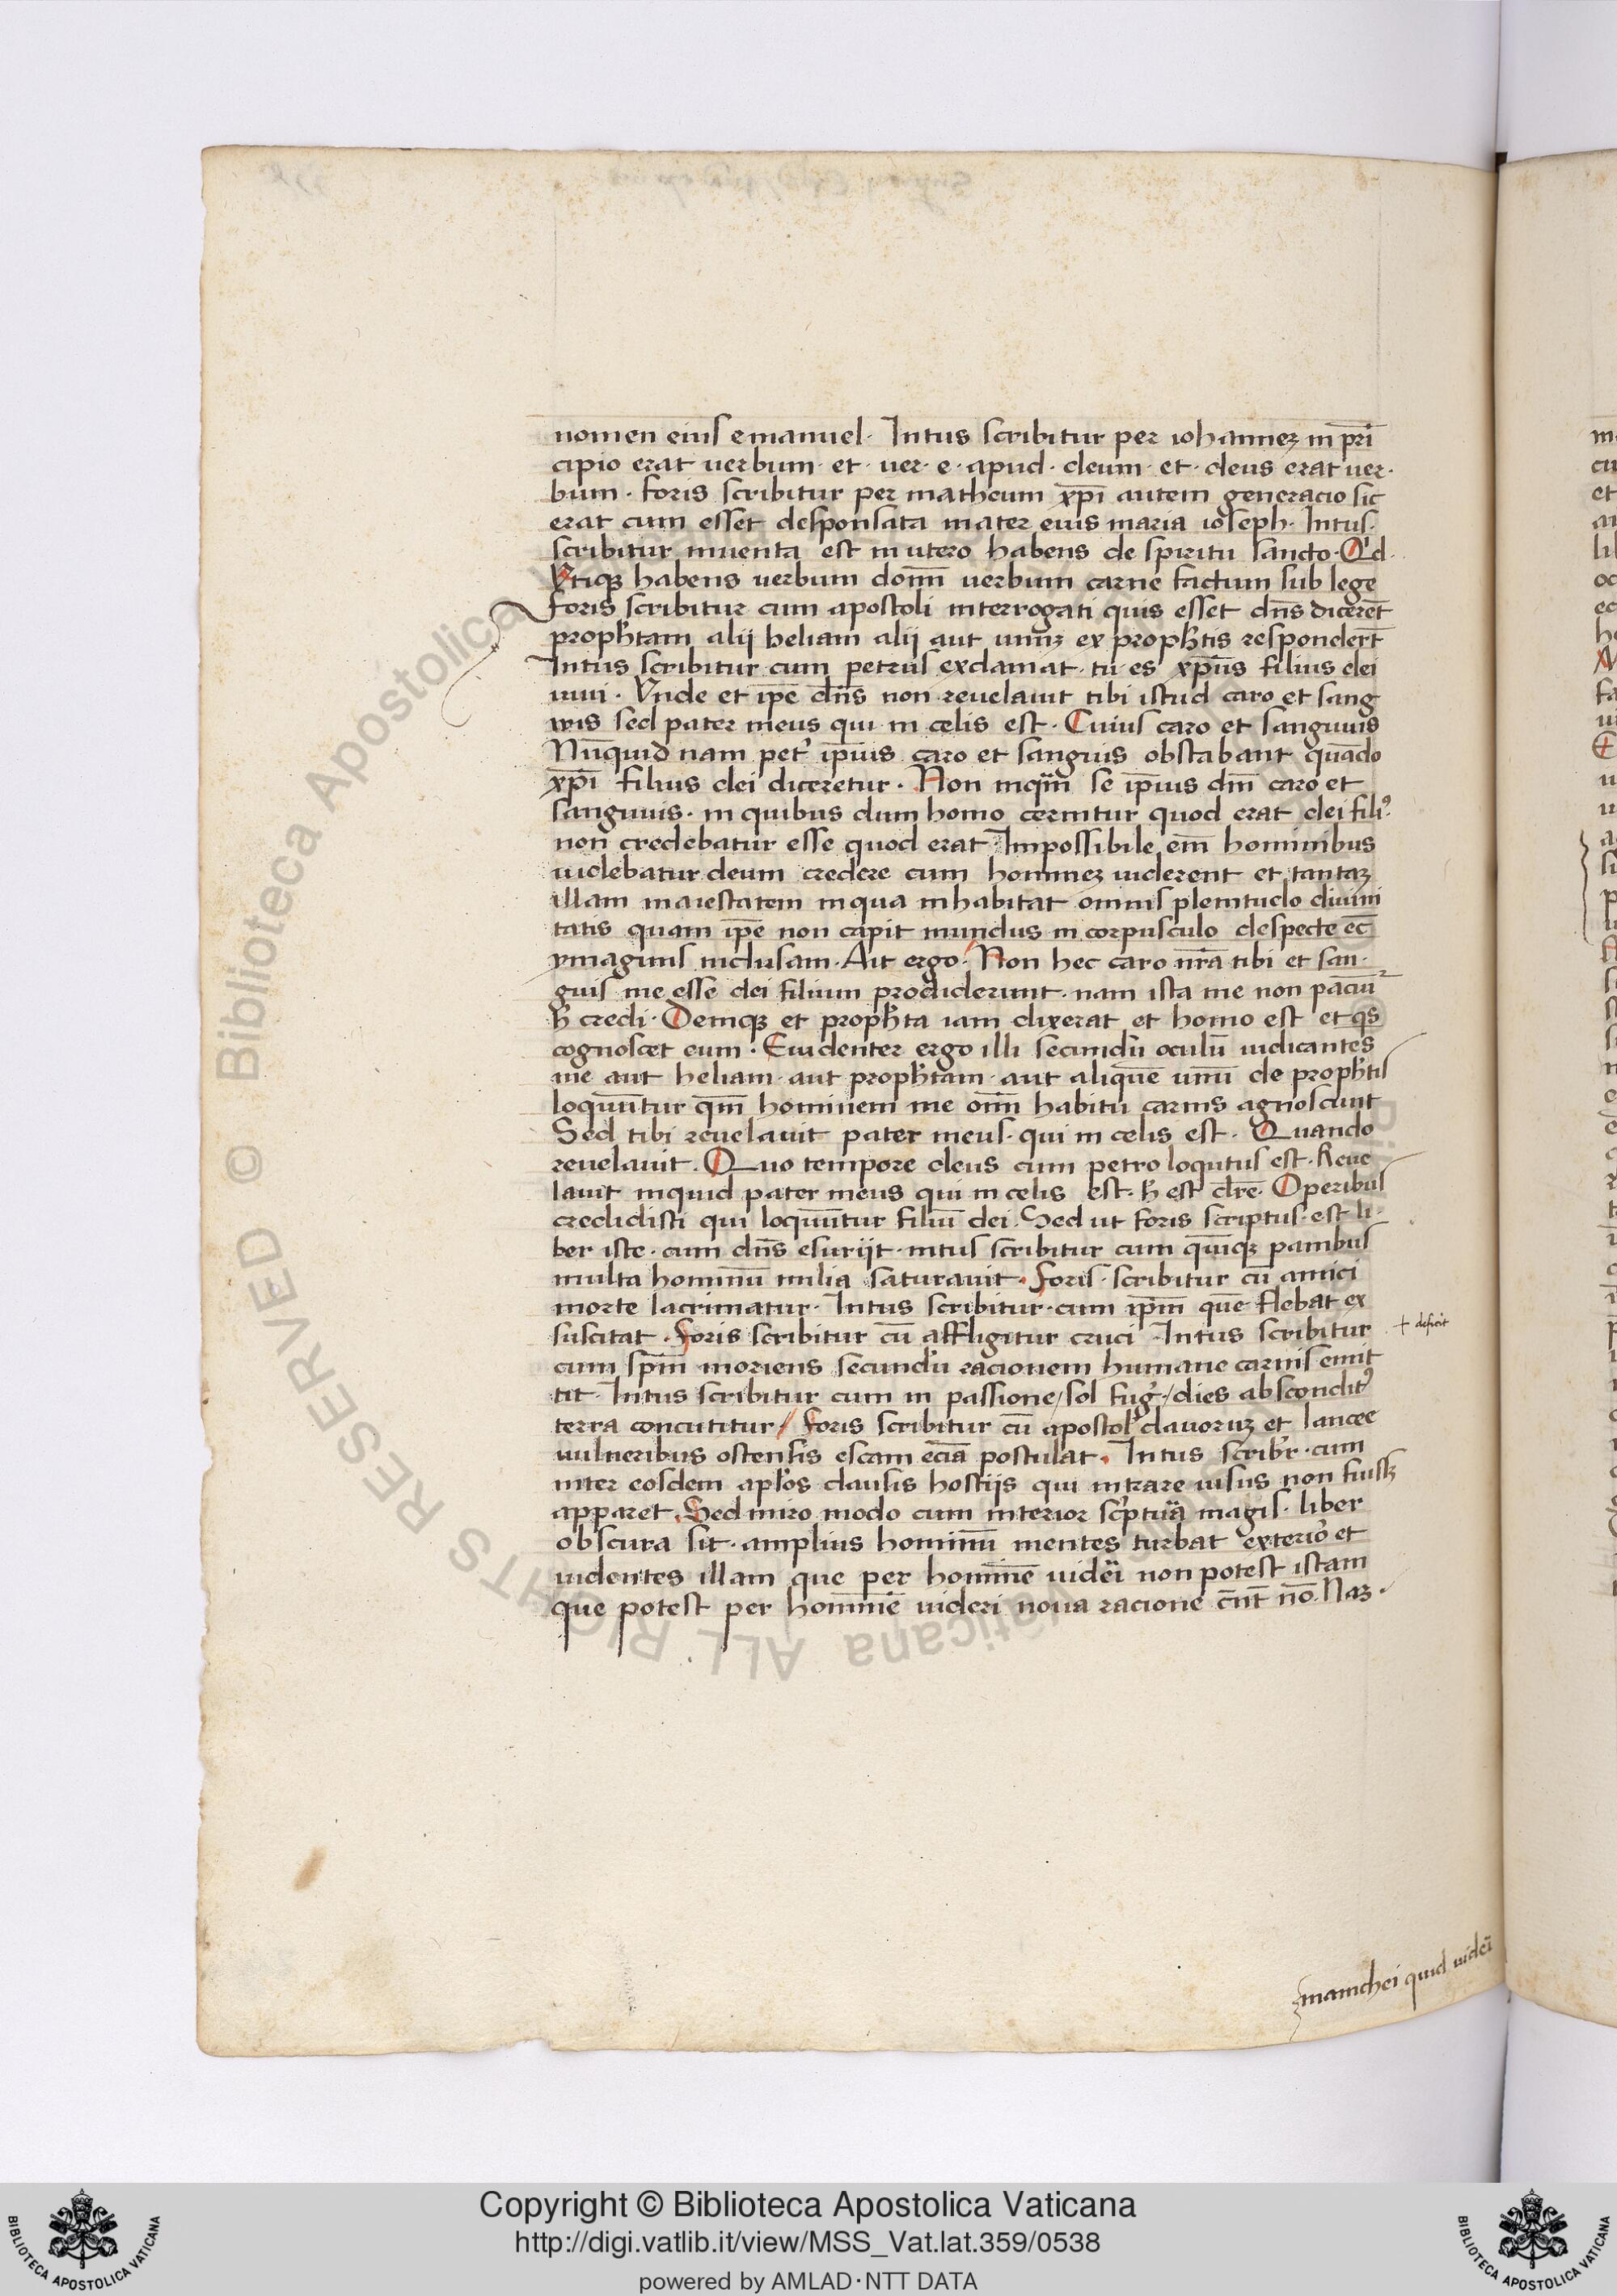 nomen eius emanuel · Intus scribitur per iohannez in pri̅
cipio erat uerbum · et · uer · e · apud · deum · et · deus erat uer·
bum · foris scribitur per matheum xp̅i autem generacio sic
erat cum esset desponsata mater eius maria ioseph · Intus ·
scribitur inuenta est in utero habens de spiritu sancto · Qd
Vtiqȝ habens uerbum dom̅ uerbum carne factum sub lege
foris scribitur cum apostoli interrogati quis esset dn̅s dicere̅t
proph̅tam alij heliam alij aut unuȝ ex proph̅tis responder̅t
Intus scribitur cum petrus exclamat · tu es xp̅us filius dei
uiui · Vnde et ip̅e dn̅s non reuelauit tibi istud caro et sang
wis sed pater meus qui in celis est · Cuius caro et sangwis
Nu̅quid nam pet' ip̅ius caro et sanguis obstabant qua̅do
xp̅i filius dei diceretur · Non inqm̅ se ip̅ius dm̅ caro et
sangwis · in quibus dum homo cernitur quod erat dei fili'
non credebatur esse quod erat · Impossibile em̅ hominibus
uidebatur deum credere cum hominez uiderent et tantaȝ
illam maiestatem in qua inhabitat omnis plenitudo diuini
tatis quam ip̅e non capit mundus in corpusculo despecte ec̅
ymaginis inclusam · Ait ergo · Non hec caro nr̅a tibi et san·
guis me esse dei filium prodiderunt · nam ista me non paciu̅
h̅ credi · Deniqȝ et proph̅ta iam dixerat et homo est et qs̅
cognoscet eum · Euidenter ergo illi secundu̅ oculu̅ iudicantes
me aut heliam · aut proph̅tam · aut alique̅ unu̅ de proph̅tis
loqu̅ntur qm̅ hominem me om̅ habitu carnis agnoscunt
Sed tibi reuelauit pater meus · qui in celis est · Quando
reuelauit · Quo tempore deus cum petro loqutus est · Reue
lauit inquid pater meus qui in celis est · h̅ est dr̅e · Operibus
credidisti qui loqu̅ntur filiu̅ dei · Sed ut foris scriptus · est li·
ber iste · cum dn̅s esurijt · intus scribitur cum qui̅qȝ panibus
multa hominu̅ milia saturauit · foris · scribitur cu̅ amici
morte lacrimatur · Intus scribitur · cum ip̅m que̅ flebat ex
suscitat · foris scribitur cu̅ affligitur cruci · Intus scribitur
+ deficit
cum sp̅m moriens secundu̅ racionem humane carnis emit
tit · Intus scribitur cum in passione / sol fug' / dies abscondit'
terra concutitur / foris scribitur cu̅ apostol' clauoruȝ et lancee
uulneribus ostensis escam ecia̅ postulat · Intus scrib'r · cum
inter eosdem aplo̅s clausis hostijs qui intrare uisus non fuisȝ
apparet · Sed miro modo cum interior sc̅ptura magis · liber
obscura sit · amplius hominu̅ mentes turbat exterio' et
uidentes illam que per homine̅ uideri non potest istam
que potest per homine̅ uideri noua racione c̅nt no̅ · Naȝ ·
manichei quid uideri
Copyright © Biblioteca Apostolica Vaticana
http://digi.vatlib.it/view/MSS_Vat.lat.359/0538
powered by AMLAD·NTT DATA
BIBLIOTECA APOSTOLICA VATICANA
BIBLIOTECA APOSTOLICA VATICANA
© Biblioteca Apostolica Vaticana ALL RIGHTS RESERVED